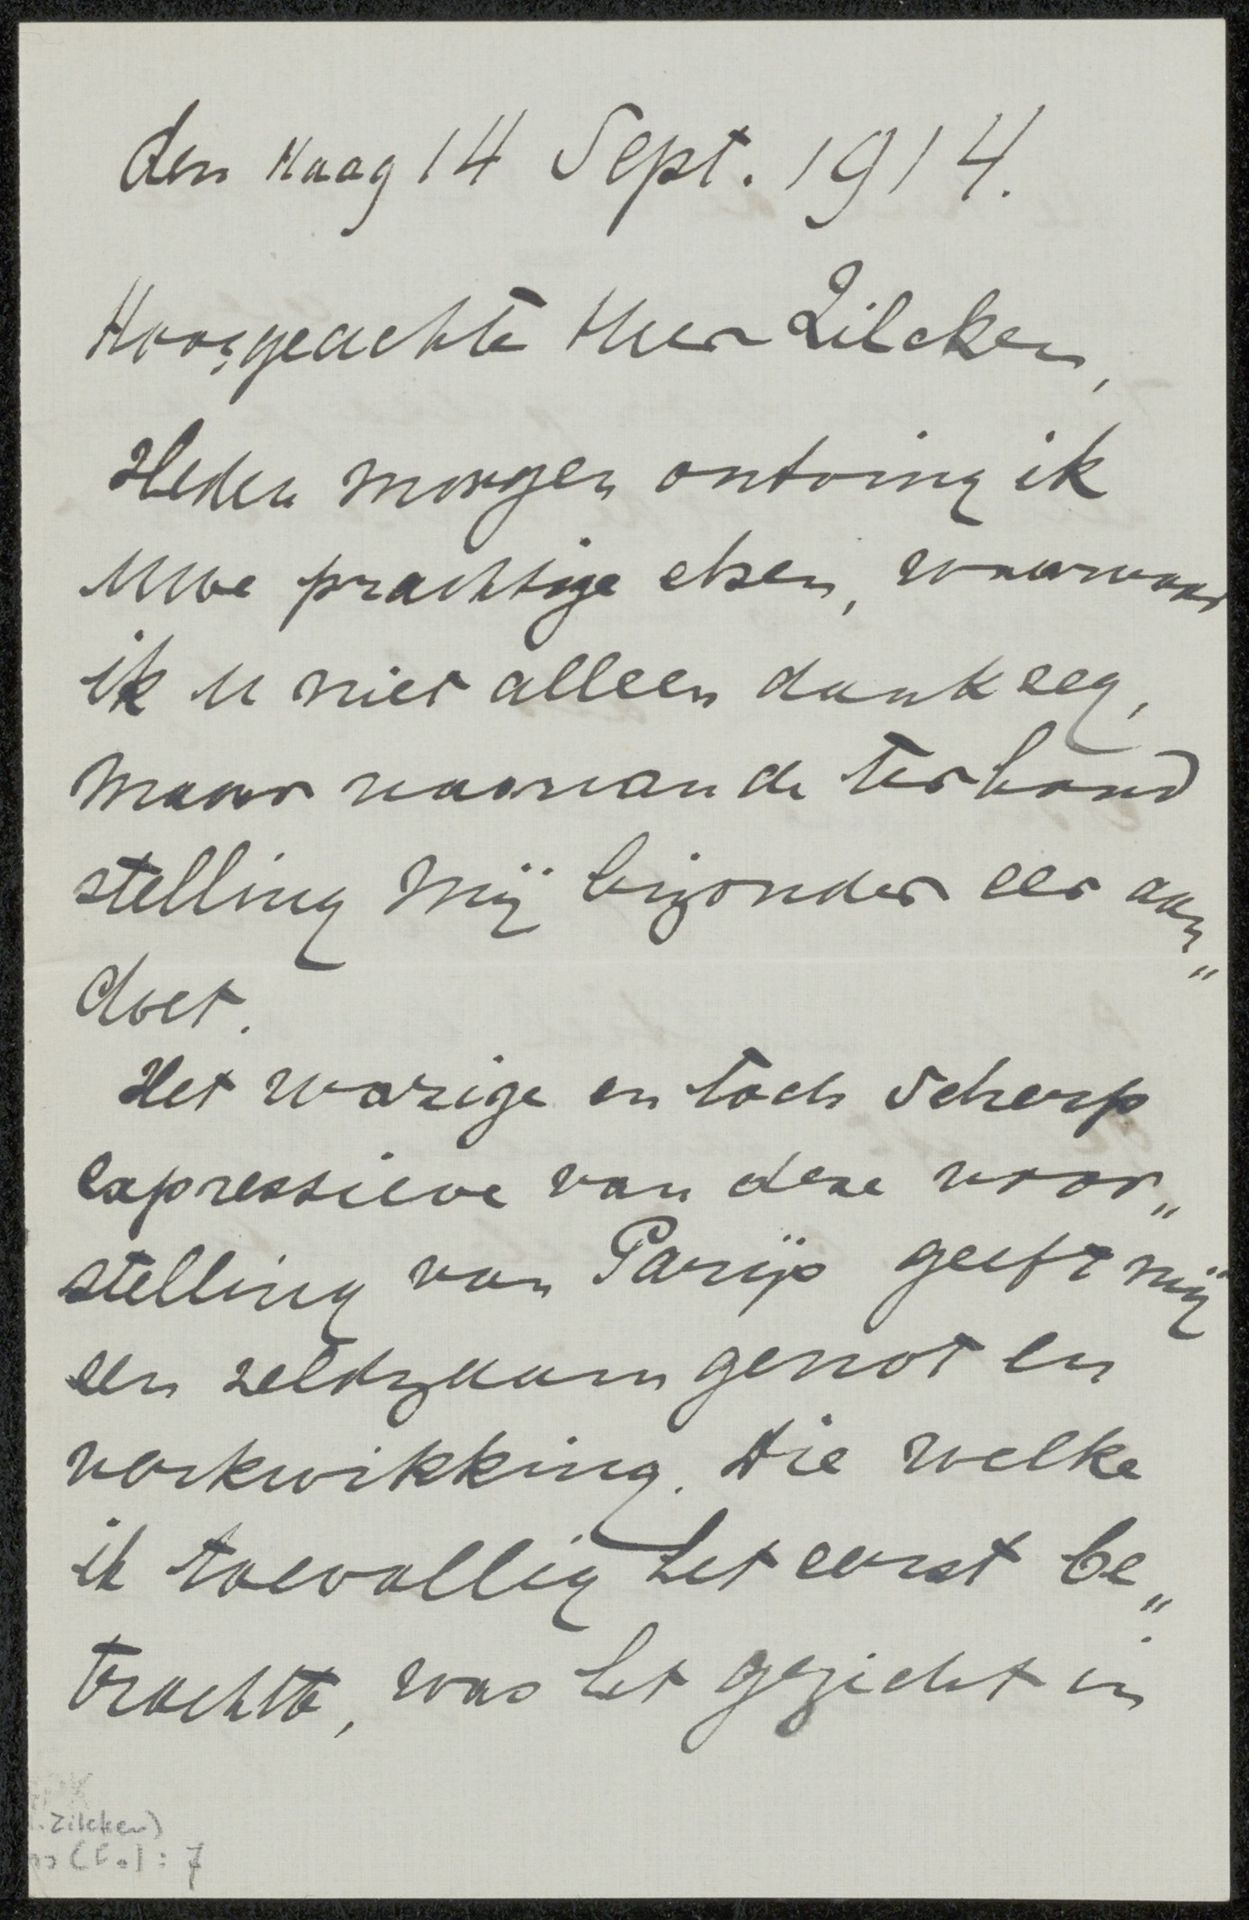 den Haag 14 Sept. 1914.
Hooggeachte Heer Zilcken,
Heden morgen ontving ik
Uwe prachtige etsen, waarvoor
ik U niet alleen dank zeg,
maar waarvan de ter hand
stelling mij bizonder eer aan„
doet.
Het wazige en toch scherp
expressieve van deze voor„
stelling van Parijs geeft mij
een zeldzaam genot en
verkwikking. Die welke
ik toevallig het eerst be„
trachtte, was het gezicht in
. Zilcken)
: 7